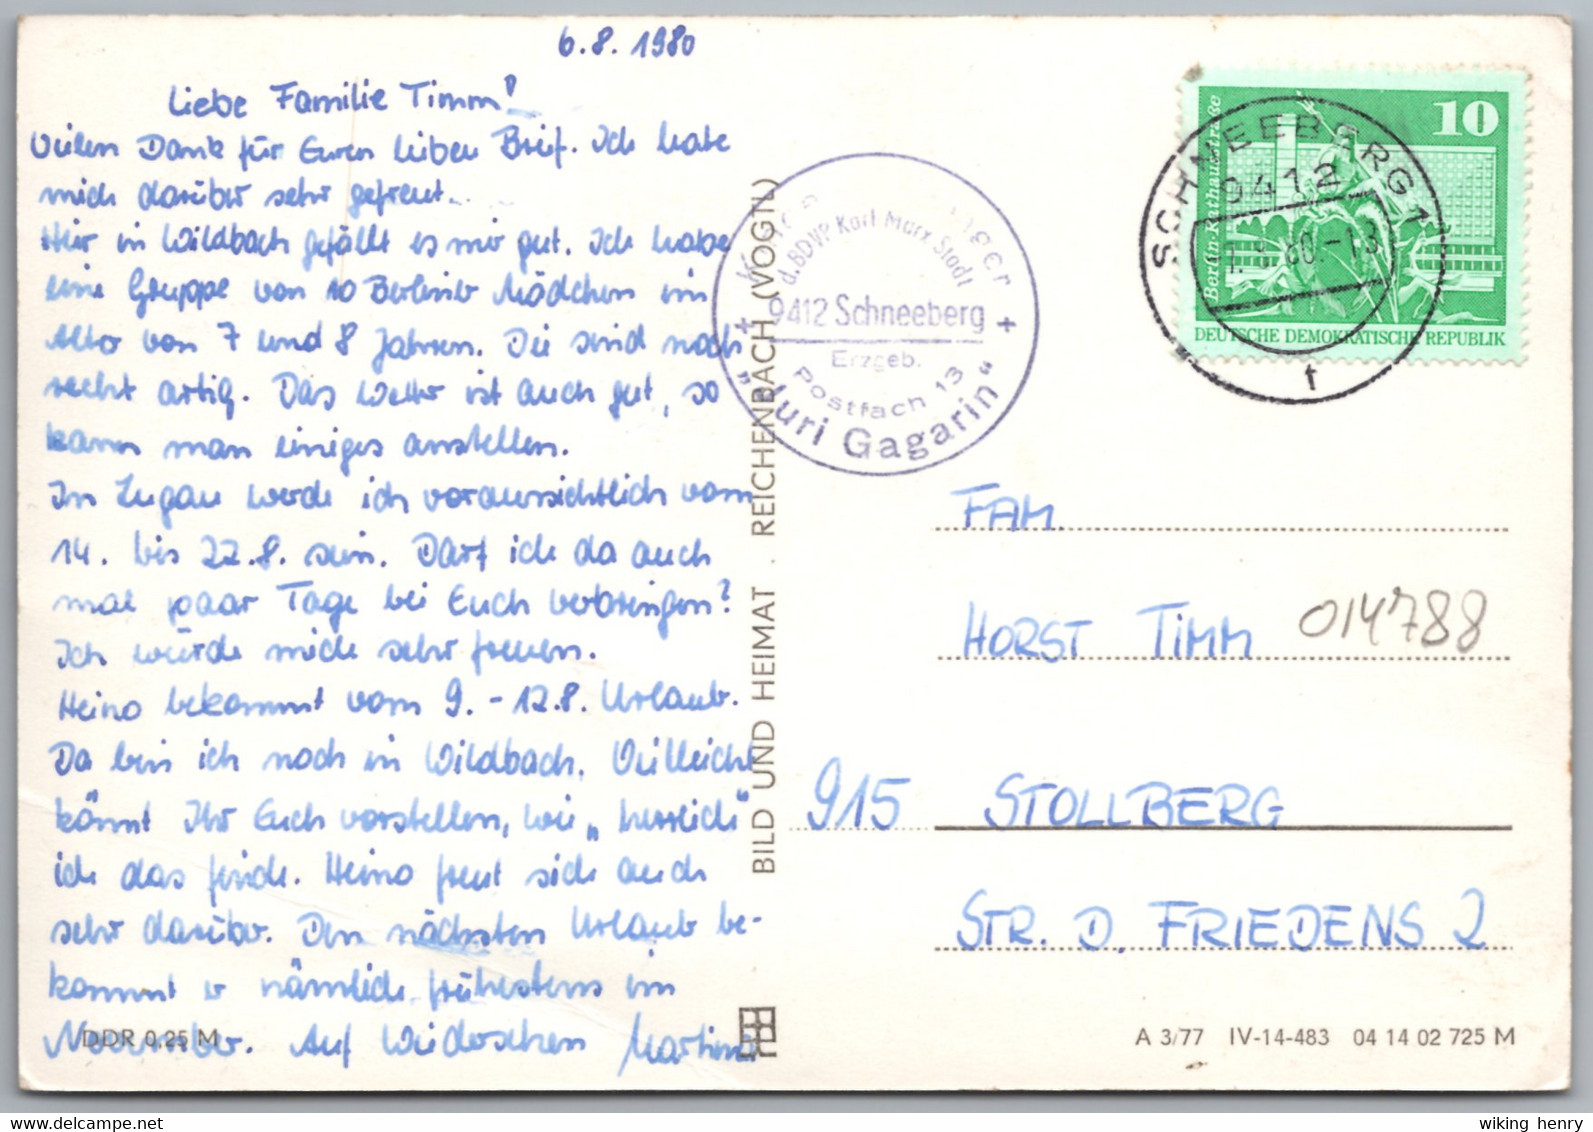 6.8.1980
Liebe Familie Timm!
Vielen Dank für Euren lieben Brief. Ich habe
mich darüber sehr gefreut.
Hier in Wildbach gefällt es mir gut. Ich habe
eine Gruppe von 10 Berliner Mädchen im
Alter von 7 und 8 Jahren. Die sind noch
recht artig. Das Wetter ist auch gut, so
kann man einiges anstellen.
In Lugau werde ich voraussichtlich vom
14. bis 22.8. sein. Darf ich da auch
mal paar Tage bei Euch verbringen?
Ich würde mich sehr freuen.
Heino bekommt vom 9. - 12.8. Urlaub.
Da bin ich noch in Wildbach. Vielleicht
könnt Ihr Euch vorstellen, wie „herrlich"
ich das finde. Heino freut sich auch
sehr darüber. Den nächsten Urlaub be-
kommt er nämlich frühestens im
November. Auf Wiedersehen Martina
DDR 0,25 M
BILD UND HEIMAT . REICHENBACH (VOGTL)
d. BDVP Karl-Marx-Stadt
+ 9412 Schneeberg +
Erzgeb.
Postfach 13
„Juri Gagarin"
SCHNEEBERG 1
9412
f
10
Berlin-Rathausstraße
DEUTSCHE DEMOKRATISCHE REPUBLIK
FAM
HORST TIMM 014788
915 STOLLBERG
STR. D. FRIEDENS 2
A 3/77 IV-14-483 04 14 02 725 M
wiking henry